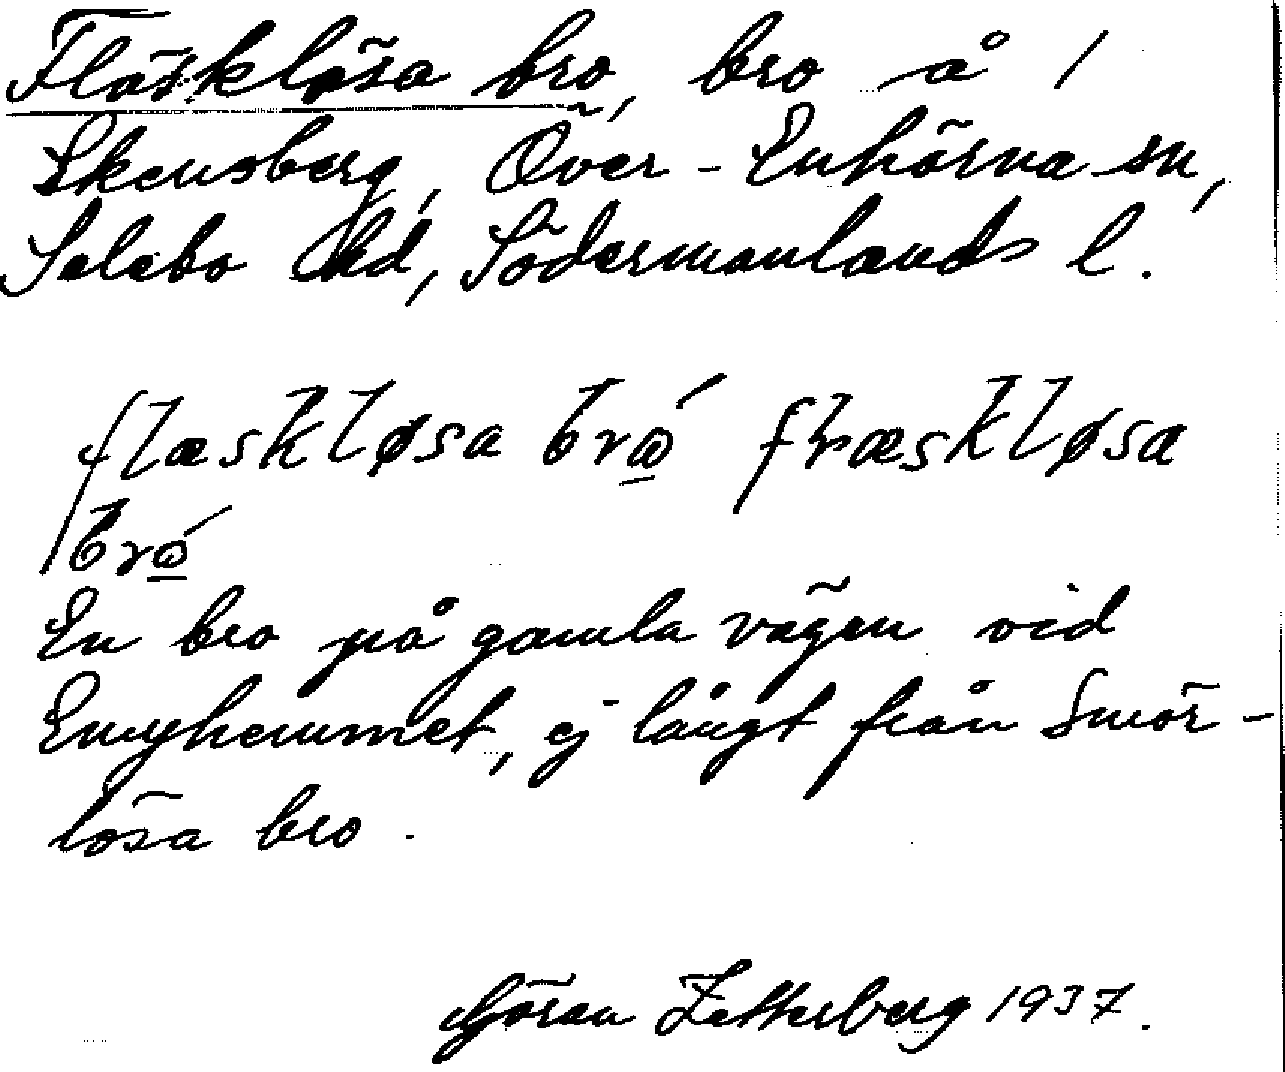 Fläsklösa bro, bro å 1
Ekensberg, Över-Enhörna sn,
Selebo hd, Södermanlands l.
flæskløsa brώ̲ fɽæskløsa
brώ̲
En bro på gamla vägen vid
Emyhemmet, ej långt från Smör-
lösa bro.
Göran Zetterberg 1937.